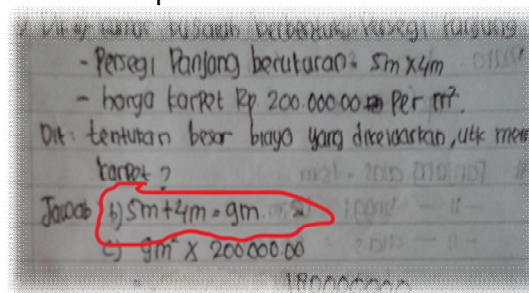 - Persegi Panjang berukuran: 5m x 4m
- harga karpet Rp. 200.000.00 Per m².
Dit: tentukan besar biaya yang dikeluarkan, utk
karpet ?
Jawab b) 5m + 4m = 9m
c) 9m² X 200000.00